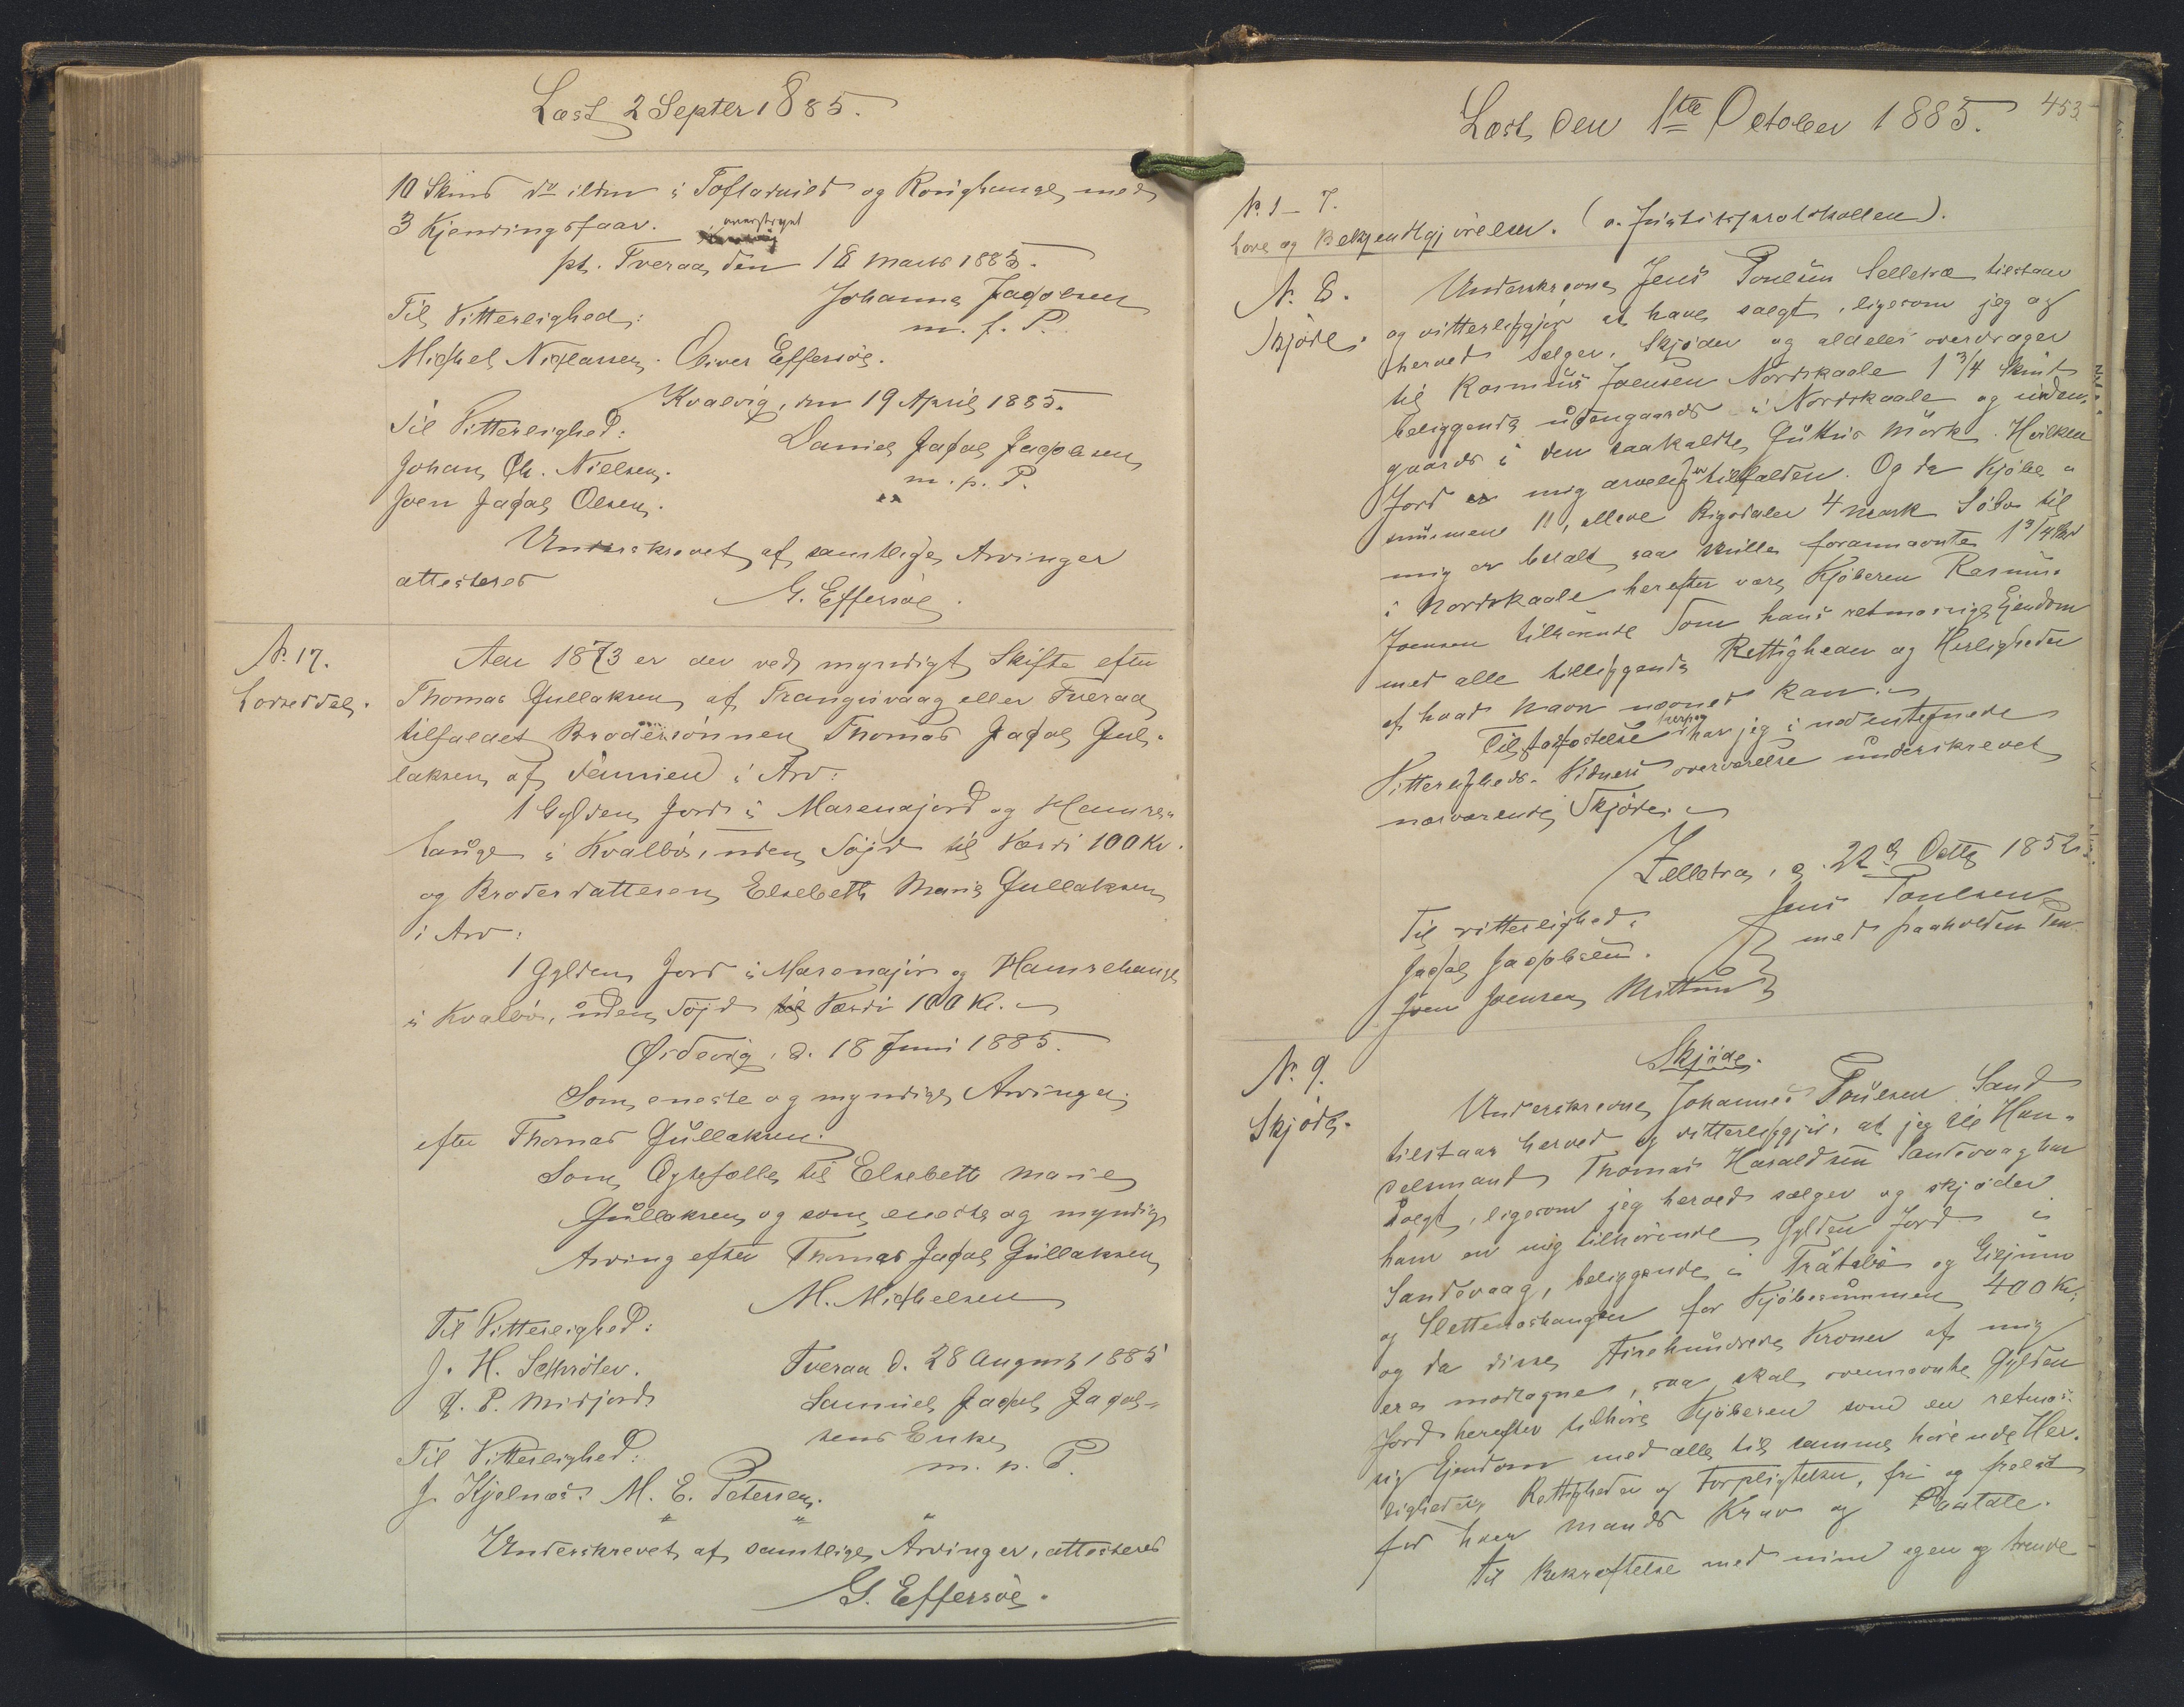 Læst 2 Septer 1885.
10 Skind do ilden i Toftarnied og Konighauge med
3 Kjendingsfaar. overstreget
pt. Tveraa, den 18 Marts 1885.
Til Vitterlighed: Johanne Jacobsen
m. f. P.
Michel Niclassen. Oliver Effersøe.
Kvalvig, den 19 April 1885.
Til Vitterlighed: Daniel Jacob Jacobsen
Johan Ch. Nielsen. m. p. P.
Joen Jacob Olsen.
Underskrevet af samtlige Arvinger
attesteres
G. Effersøe.
No. 17.
Lodseddel.
Aar 1873 er der ved myndigt Skifte efter
Thomas Gullaksen af Trangisvaag eller Tveraa
tilfaldet Brodersønnen Thomas Jacob Gul-
laksen af i Arv:
1 Gylden Jord i Marenajord og Hamre-
hauge i Kvalbø, uden Søjd til Værdi 100 Kr.
og Broderdatteren Elsebeth Marie Gullaksen
i Arv:
1 Gylden Jord i Marenajord og Hamrehauge
i Kvalbø, uden Søjd til Værdi 100 Kr.
Ørdevig, d. 18 Juni 1885.
Som eneste og myndige Arvinger
efter Thomas Gullaksen.
Som Ægtefælle til Elsebett Marie
Gullaksen og som eneste og myndige
Arving efter Thomas Jacob Gullaksen
M. Michelsen
Til Vitterlighed:
J. H. Schrøter. Tveraa d. 28 August 1885
J. P. Midjord. Samuel Jacob Jacob-
sens Enke
Til Vitterlighed: m. p. P.
J. Kjølnæs. M. E. Petersen.
Underskrevet af samtlige Arvinger, attesteres
G. Effersøe.
Læst den 1ste October 1885. 453
No. 1-7.
Love og Bekjendtgjørelser. (v. Justitsprotokollen).
No. 8.
Skjøde.
Underskrevne Jens Poulsen Selletræ tilstaar
og vitterliggjør at have solgt, ligesom jeg og
herved sælger, skjøder og aldeles overdrager
til Rasmus Joensen Nordskaale 1 3/4 Skind
beliggende udengaards i Nordskaale og inden-
gaards i den saakaldte Guttris Mørk. Hvilken
Jord er mig arvelig tilfalden. Og da Kjøbe-
summen 11, elleve Rigsdaler 4 Mark Sølv til
mig er betalt, saa skulle forannævnte 1 3/4 Skd
i Nordskaale herefter være Kjøberen Rasmus
Joensen tilhørende som hans retmæssige Ejendom
med alle tilliggende Rettigheder og Herligheder
af hvad Navn nævnes kan.
Til fæstelse herpaa har jeg i nedentegnede
Vitterligheds-Vidners overværelse underskrevet
nærværende Skjøde.
Zelletræ, d. 22d Octbr 1852.
Til vitterlighed: Jens Poulsen
Jacob Jacobsen. med paaholden Pen
Joen Joensen
No. 9.
Skjøde.
Skjøde.
Underskrevne Johannes Poulsen Sand
tilstaar herved og vitterliggjør, at jeg til Han-
delsmand Thomas Haraldsen Sandevaag har
solgt, ligesom jeg herved sælger og skjøder
ham en mig tilhørende Gylden Jord i
Sandevaag, beliggende i Trøtebø og Giljum
og Slettenashaugen for Kjøbesummen 400 Kr.
og da disse Firehundrede Kroner af mig
ere modtagne, saa skal ovennævnte Gylden
Jord herefter tilhøre Kjøberen som en retmæs-
sig Ejendom med alle til samme hørende Her-
ligheder, Rettigheder og Forpligtelser, fri og frelst
for hver Mands Krav og Paatale.
Til Bekræftelse med min egen og tvende